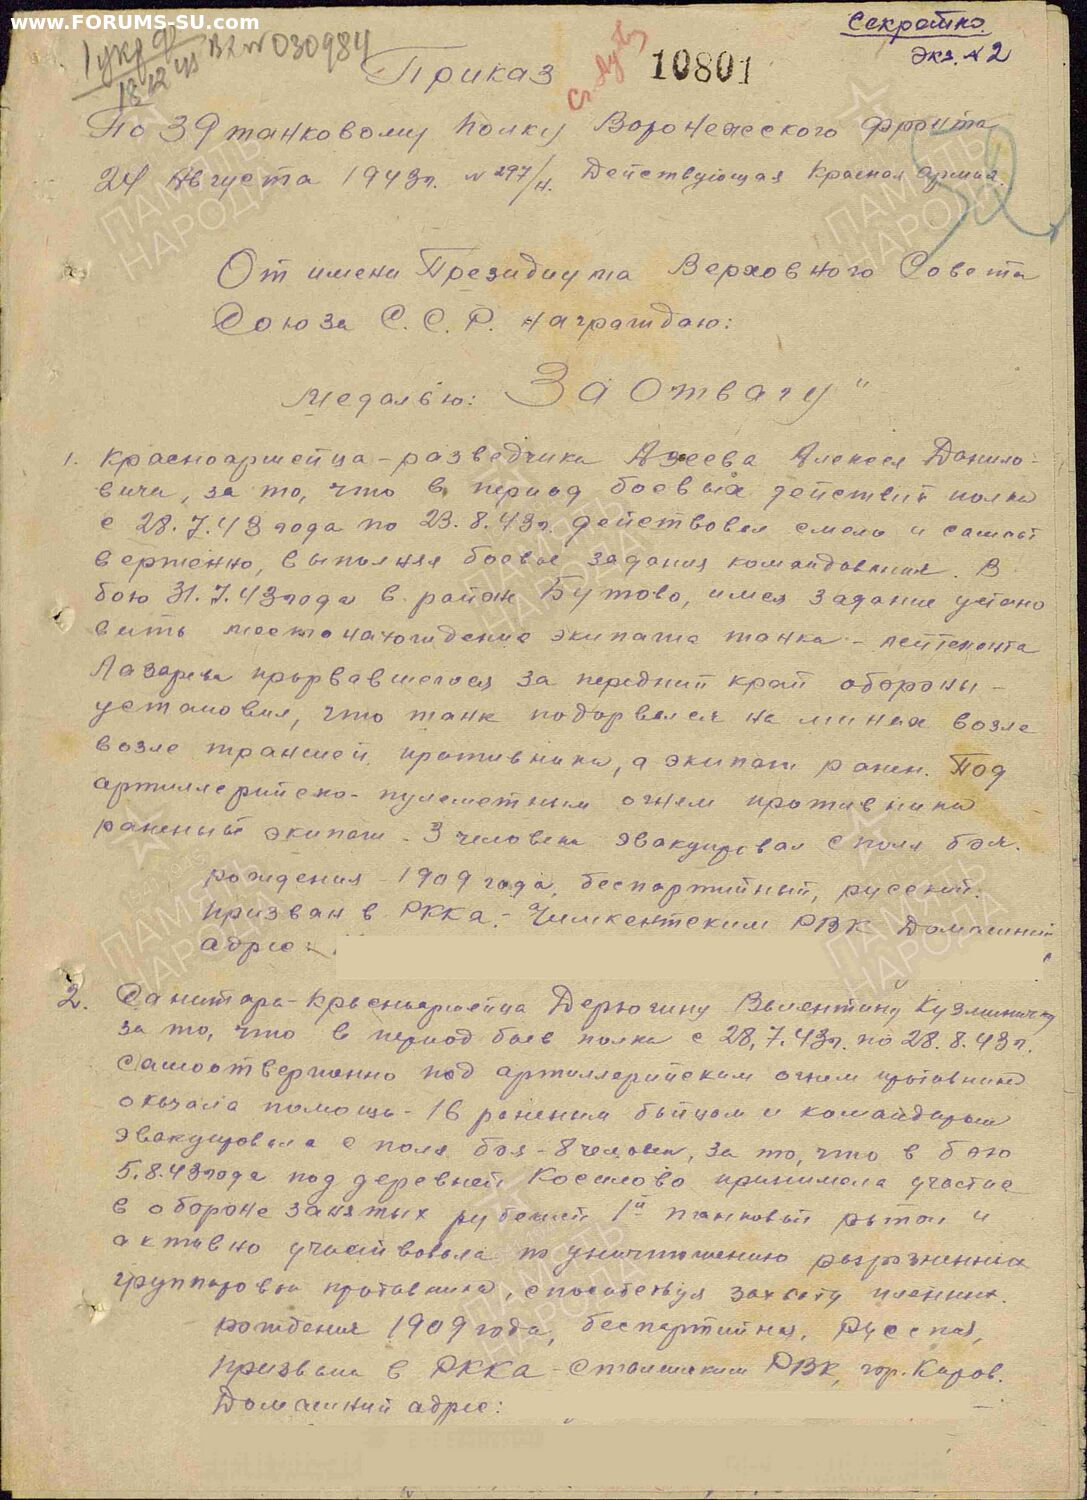 www.FORUMS-SU.com
Секретно.
Экз. № 2
1 укр ф
18.12.43 Вх № 030984
10801
Приказ
По 39 танковому полку Воронежского фронта
24 августа 1943г. № 297/н. Действующая Красная Армия.
От имени Президиума Верховного Совета
Союза С.С.Р. награждаю:
медалью: За Отвагу"
1. Красноармейца - разведчика Азеева Алексея Данило-
вича, за то, что в период боевых действий полка
с 28.7.43 года по 23.8.43г. действовал смело и самоот
верженно, выполняя боевые задания командования. В
бою 31.7.43 года в район Бутово, имея задание устано
вить местонахождение экипажа танка - лейтенанта
Лазарева прорвавшегося за передний край обороны -
установил, что танк подорвался на минах возле
возле траншей противника, а экипаж ранен. Под
артиллерийско-пулеметным огнем противника
раненый экипаж - 3 человека эвакуировал с поля боя.
рождения - 1909 года, беспартийный, русский.
Призван в РККА - Чимкентским РВК Домашний
адрес:
2. Санитара - Красноармейца Дерюгину Валентину Кузминичну
за то, что в период боев полка с 28.7.43г. по 28.8.43г.
самоотверженно под артиллерийским огнем противника
оказала помощь - 16 раненым бойцам и командирам
эвакуировала с поля боя - 8 человек, за то, что в бою
5.8.43 года под деревней Косилово принимала участие
в обороне занятых рубежей 1й танковой ротой и
активно участвовала по уничтожению разрозненных
группировок противника, способствуя захвату пленных.
рождения 1909 года, беспартийная, Русская,
призвана в РККА - Сталинским РВК, гор. Киров.
Домашний адрес:
ПАМЯТЬ НАРОДА